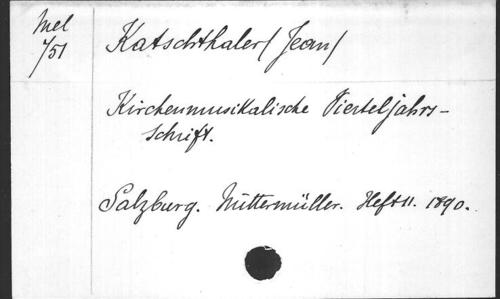 Mel
7/51
Katschthaler (Jean)
Kirchenmusikalische Vierteljahrs-
Schrift.
Salzburg. Mittermüller. Heft 11. 1890.